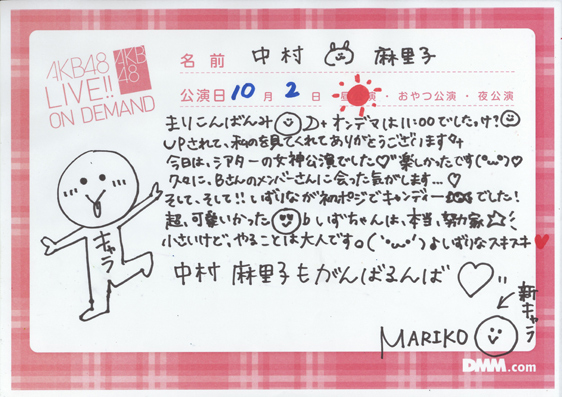 AKB48
LIVE!!
ON DEMAND
AKB
48
名前 中村 麻里子
公演日 10月 2日 昼公演・おやつ公演・夜公演
まりこんばんみ☺☽+オンデマは11:00でしたっけ?☺
UPされて、私のを見てくれてありがとうございます
今日は、シアターの女神公演でした♡楽しかったです(°ω°)♡
久々に、Bさんのメンバーさんに会った気がします...♡
そして、そして!!しずりながネ刀ポジでキャンディーでした!
超、可愛いかった☺bしずちゃんは、本当、努力家☆
小さいけど、やることは大人です。(°ω°)
中村 麻里子もがんばるんば♡
キャラ
新キャラ
MARIKO
DMM.com